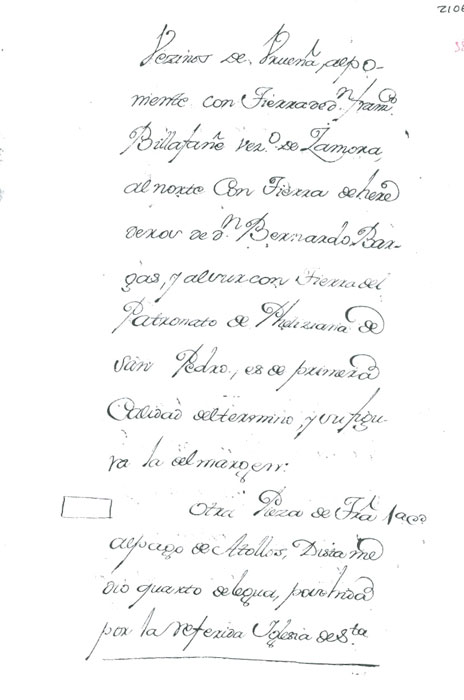 2106
Vezinos de Prueña, al po-
niente con Tierra de Dn. Franco.
Billafañe vezo. de Zamora,
al norte con Tierra de here
deros de Dn. Bernardo Bar-
gas, y al sur con Tierra del
Patronato de Pheliziana de
San Pedro, es de primera
Calidad del termino, y su figu-
ra la del margen:
Otra Pieza de
al pago de Atollos, Dista me
dio quarto de legua,
por la referida Iglesia de Sta.